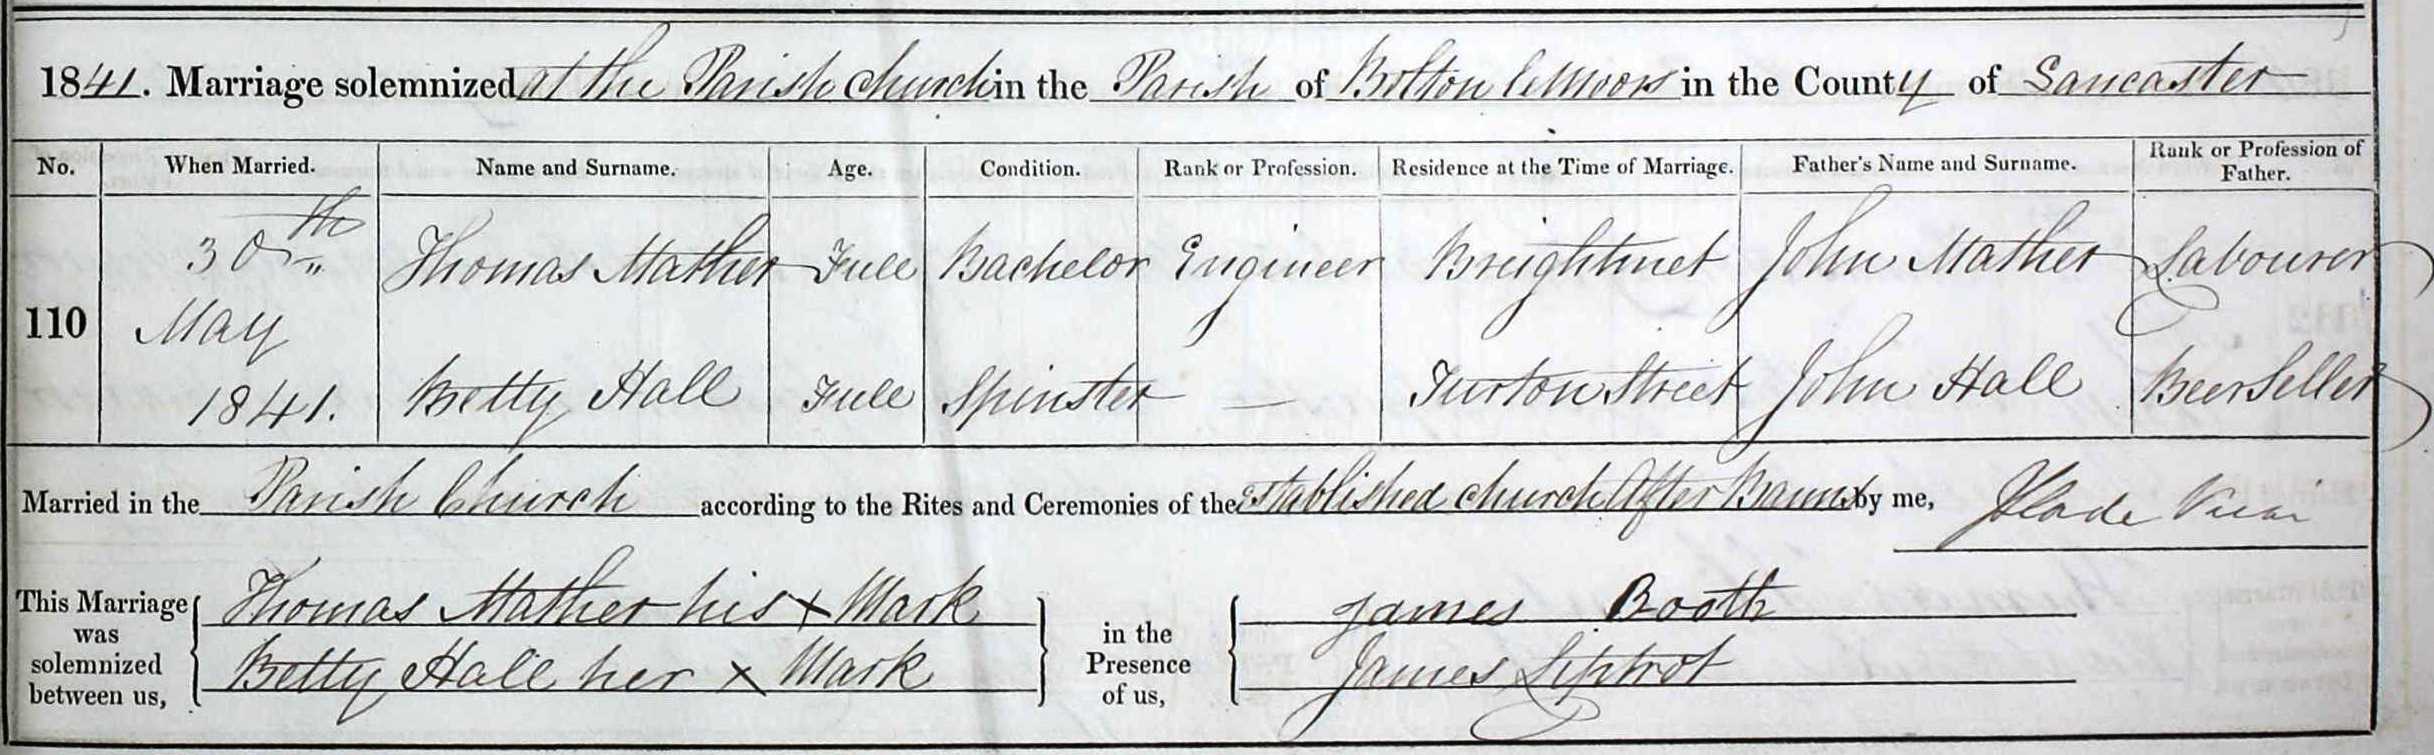 1841. Marriage solemnized at the Parish Church in the Parish of Bolton le Moors in the County of Lancaster
No. When Married. Name and Surname. Age. Condition. Rank or Profession. Residence at the Time of Marriage. Father's Name and Surname. Rank or Profession of Father.
110 30th May 1841. Thomas Mather Full Bachelor Engineer Breightmet John Mather Labourer
Betty Hall Full Spinster — Turton Street John Hall Beer Seller
Married in the Parish Church according to the Rites and Ceremonies of the Established Church After Banns by me, Slade Vicar
This Marriage was solemnized between us, Thomas Mather his x Mark
Betty Hall her x Mark
in the Presence of us, James Booth
James Liptrot